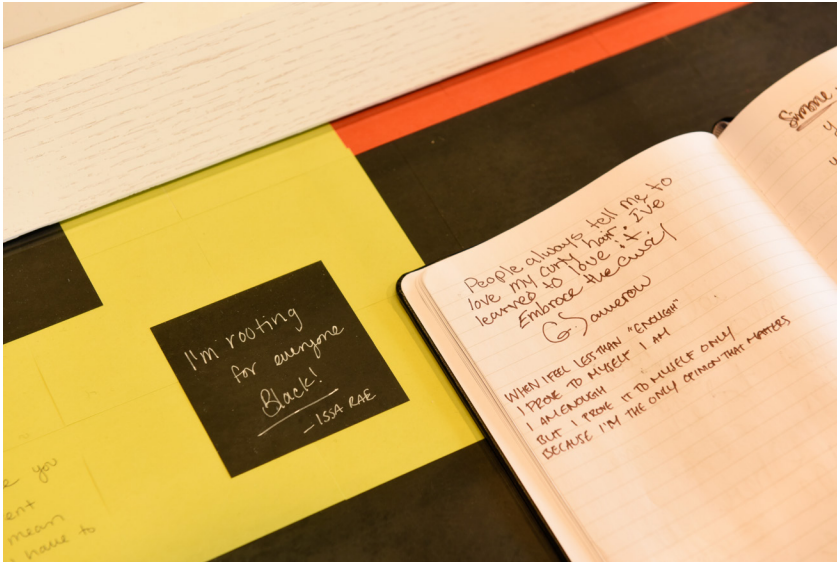 I'm rooting
for everyone
Black!
- ISSA RAE
you
ent
mean
have to
People always tell me to
love my curly hair. I've
learned to love it.
Embrace the curls!
G. Sameron
WHEN I FEEL LESS THAN "ENOUGH"
I PROVE TO MYSELF I AM
I AM ENOUGH
BUT I PROVE IT TO MYSELF ONLY
BECAUSE I'M THE ONLY OPINION THAT MATTERS
Simone